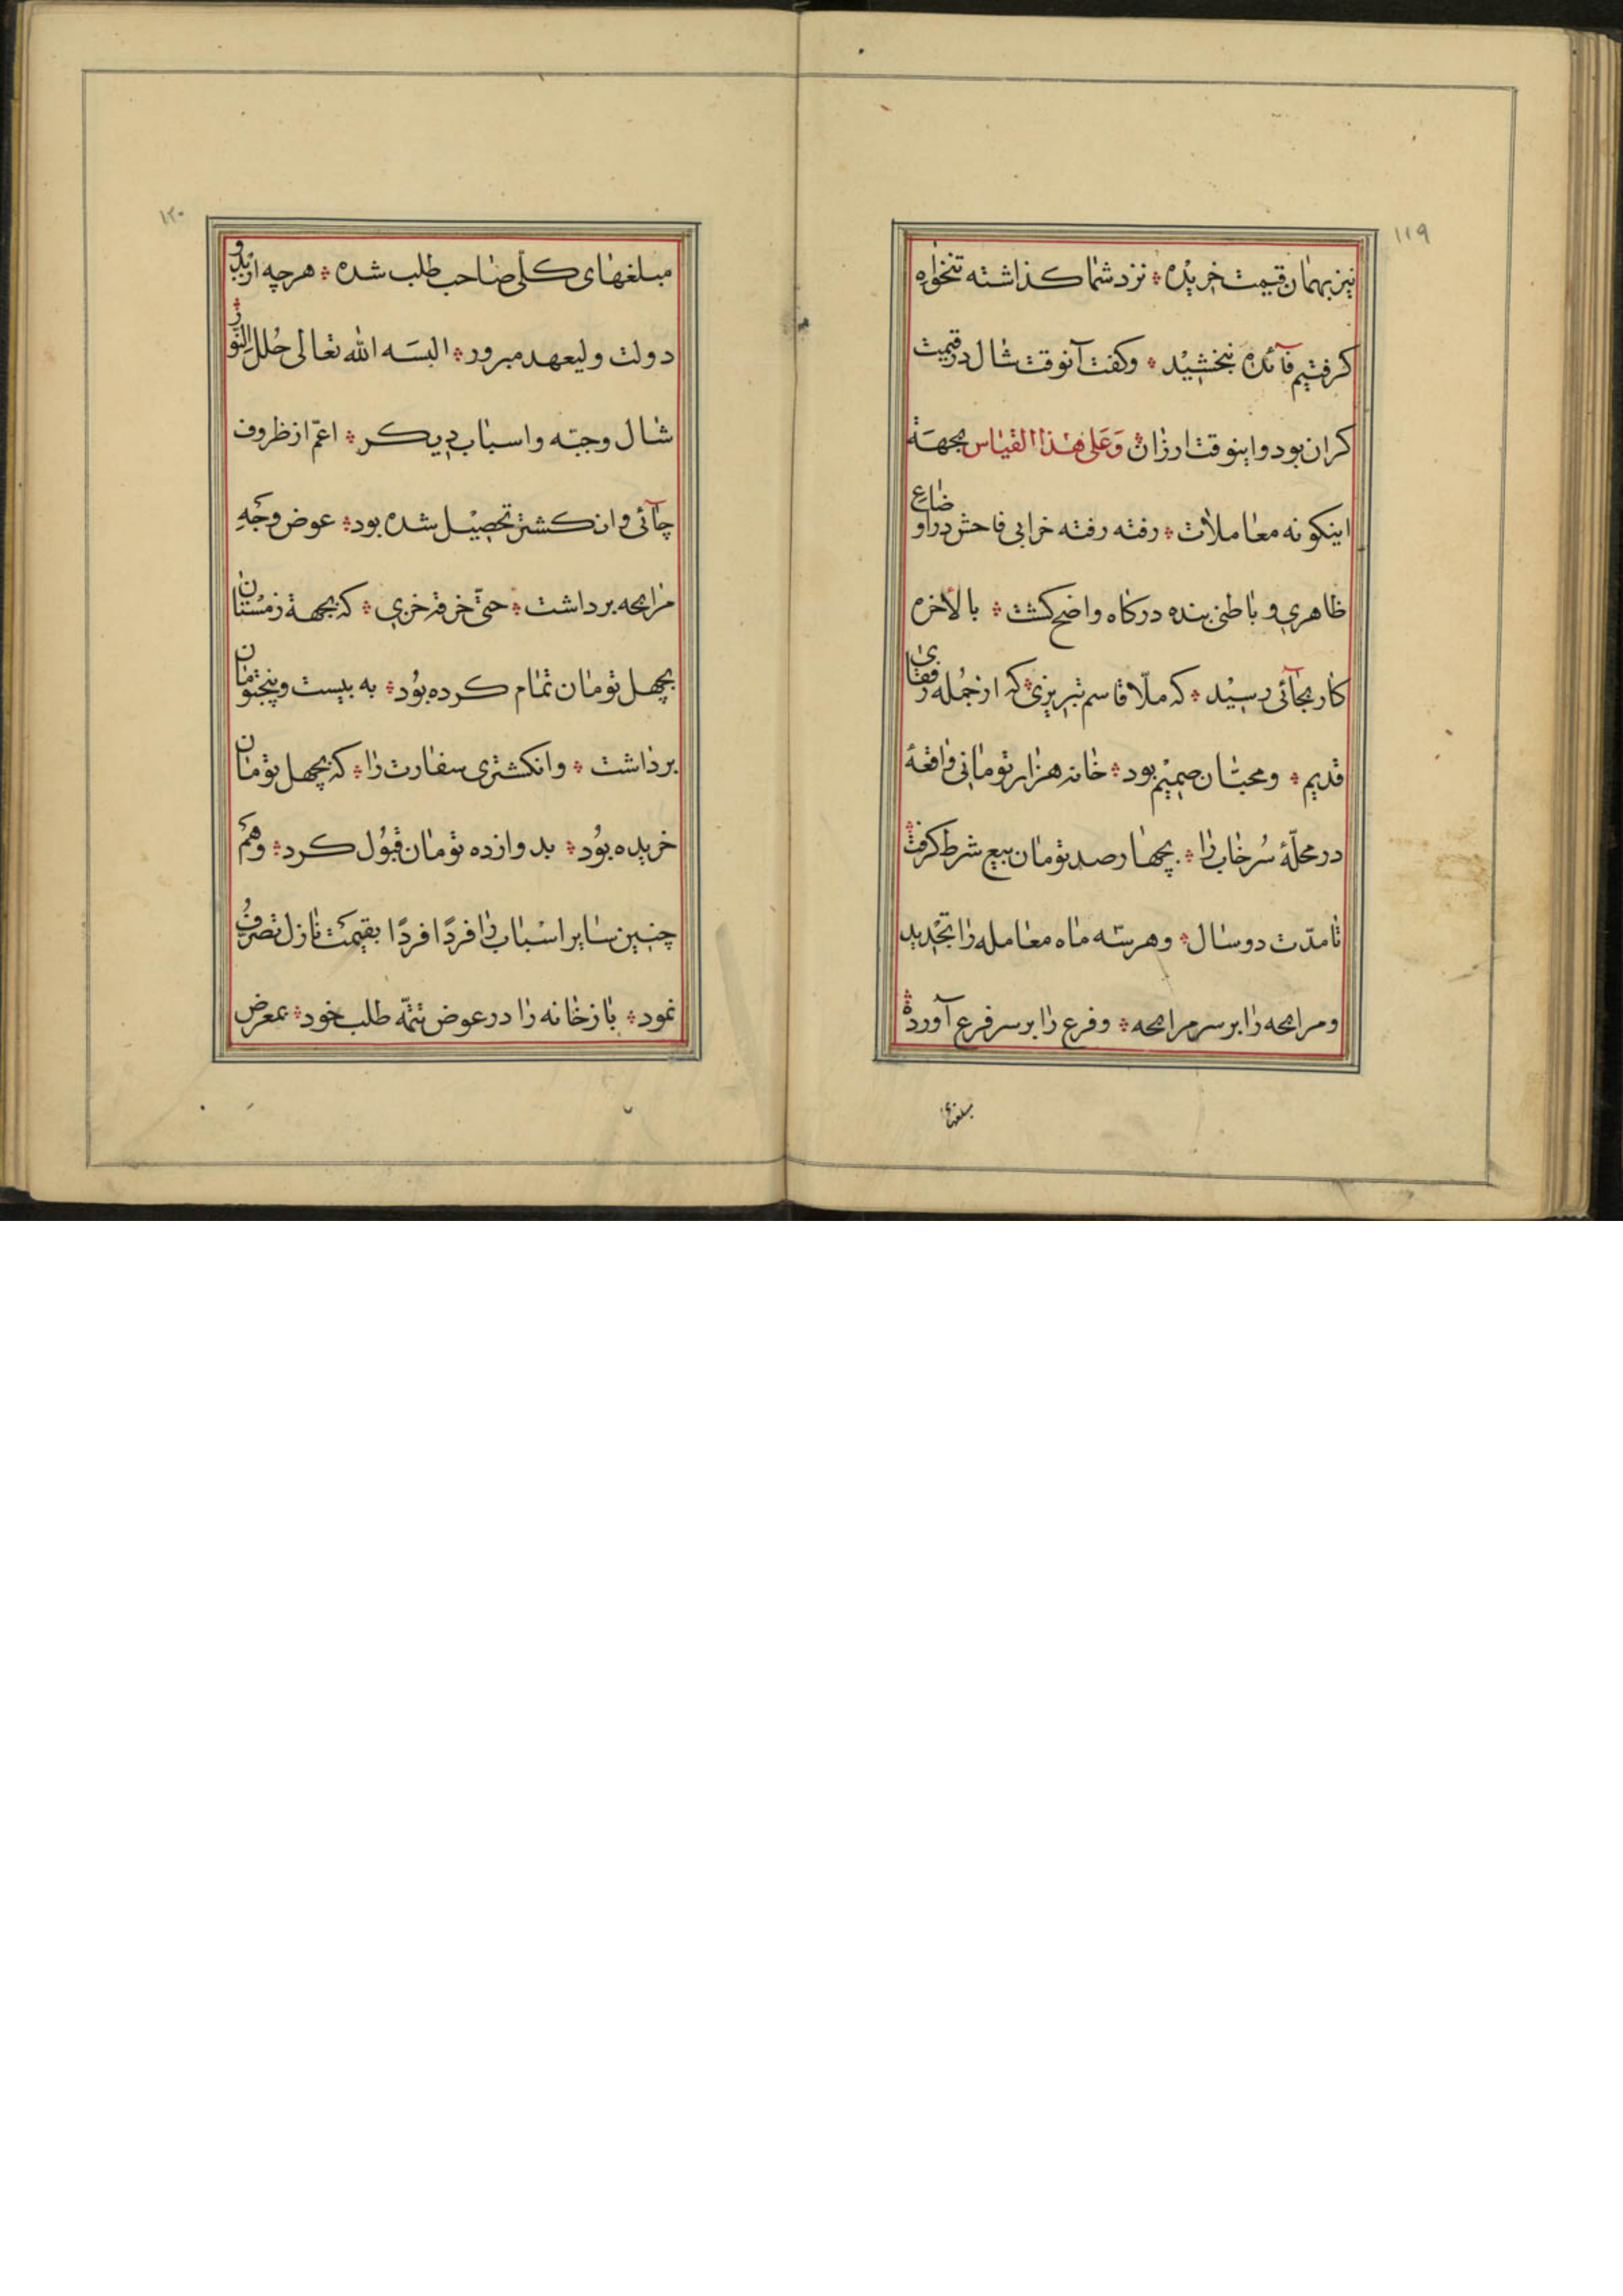 ۱۱۹
نیز بهمان قیمت خریده ؞ نزد شما کذاشته تنخواه
کرفتیم فآئده نبخشید ؞ وکفت آنوقت شال در قیمت
کران بود و اینوقت ارزان ؞ وَعَلی هٰذا القیاس بجهة
اینکونه معاملات ؞ رفته رفته خرابی فاحش در اوضاع
ظاهری و باطنی بنده درکاه واضح کشت ؞ بالأخره
کار بجآئی رسید ؞ که ملّا قاسم تبریزی ؞ که از جُمله رفقای
قدیم ؞ ومحبّان صمیم بود ؞ خانه هزار تومانی واقعهٔ
در محلّهٔ سُرخاب را ؞ بچهارصد تومان بیع شرط کرفت ؞
تا مدّت دو سال ؞ وهر سّه ماه معامله را تجدید
ومرابحه را بر سر مرابحه ؞ وفرع را بر سر فرع آورده ؞
مبلغهای
۱۲۰
مبلغهای کلّی صاحب طلب شده ؞ هرچه از بدو
دولت ولیعهد مبرور ؞ البسَه الله تعالی حُلل النّور ؞
شال وجبّه واسباب دیکر ؞ اعمّ از ظروف
چآئی و انکشتر تحصیل شده بود ؞ عوض وجَهِ
مرابحه برداشت ؞ حتّی خرقه خزی ؞ که بجهة زمستان
بچهل تومان تمام کرده بُود ؞ به بیست و پنجتومان
برداشت ؞ وانکشتری سفارت را ؞ که بچهل تومان
خریده بُود ؞ بدوازده تومان قبُول کرد ؞ وهَم
چنین سایر اسْباب را فردًا فردًا بقیمَت نازل تصرُّف
نمود ؞ باز خانه را در عوض تتمّه طلب خود ؞ بمعرض